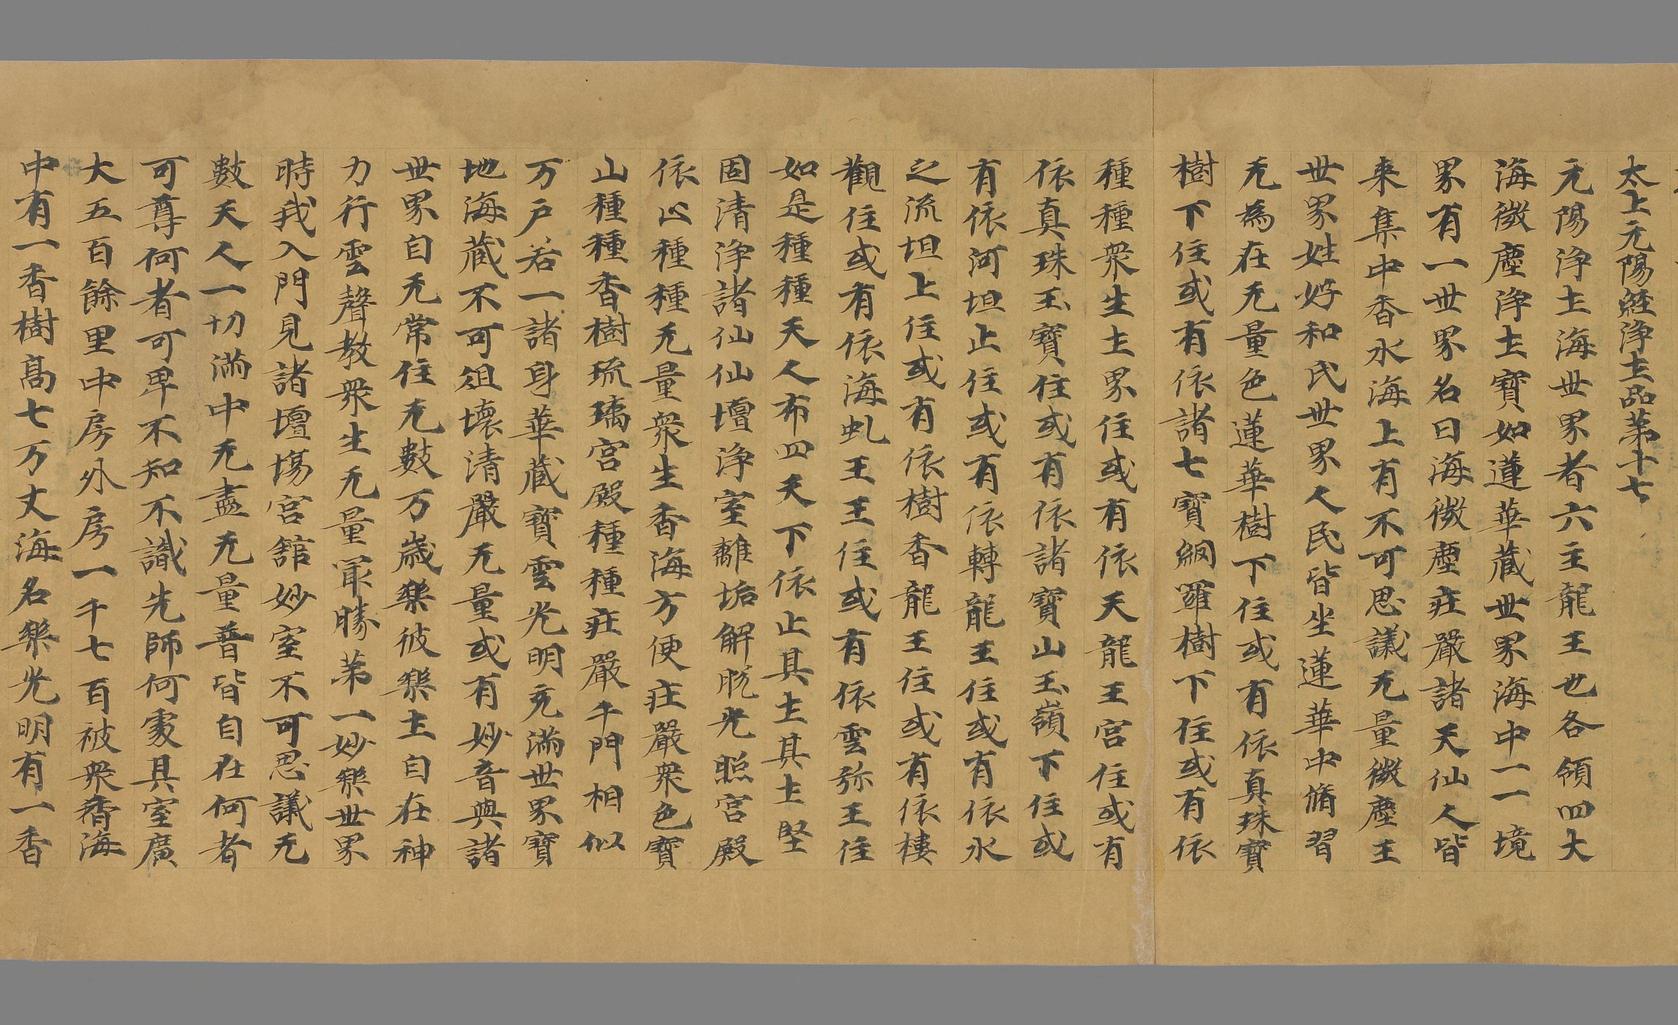 太上元陽經淨土品第十七
元陽淨土海世界者六主龍王也各領四大
海微塵淨土寶如蓮華藏世界海中一一境
界有一世界名曰海微塵莊嚴諸天仙人皆
來集中香水海上有不可思議无量微塵土
世界姓好和民世界人民皆坐蓮華中脩習
无為在无量色蓮華樹下住或有依真珠寶
樹下住或有依諸七寶網羅樹下住或有依
種種衆生主界住或有依天龍王宮住或有
依真珠玉寶住或有依諸寶山玉嶺下住或
有依河坦止住或有依轉龍王住或有依水
之流坦上住或有依樹香龍王住或有依樓
觀住或有依海虬王王住或有依雲弥王住
如是種種天人布四天下依止其土其土堅
固清淨諸仙仙壇淨室離垢解脫光照宮殿
依心種種无量衆生香海方便莊嚴衆色寶
山種種香樹琉璃宮殿種種莊嚴千門相似
万戶若一諸身華藏寶雲光明充滿世界寶
地海藏不可俎壞清嚴无量或有妙音與諸
世界自无常住无數万歲樂彼樂土自在神
力行雲聲教衆生无量冣勝第一妙樂世界
時我入門見諸壇場宮舘妙室不可思議无
數天人一切滿中无盡无量普皆自在何者
可尊何者可卑不知不識先師何處其室廣
大五百餘里中房外房一千七百被衆香海
中有一香樹高七万丈海名樂光明有一香